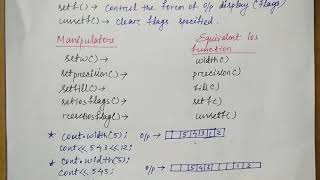 setf() → control the form of o/p display (flags)
unsetf() → clear flags specified.
Manipulators
Equivalent ios function
setw() → width()
setprecision() → precision()
setfill() → fill()
setiosflags() → setf()
resetiosflags() → unsetf()
* cout.width(5);
cout<<543<<12;
o/p → 5 4 3 1 2
* cout.width(5);
cout<<543;
o/p → 5 4 3 1 2